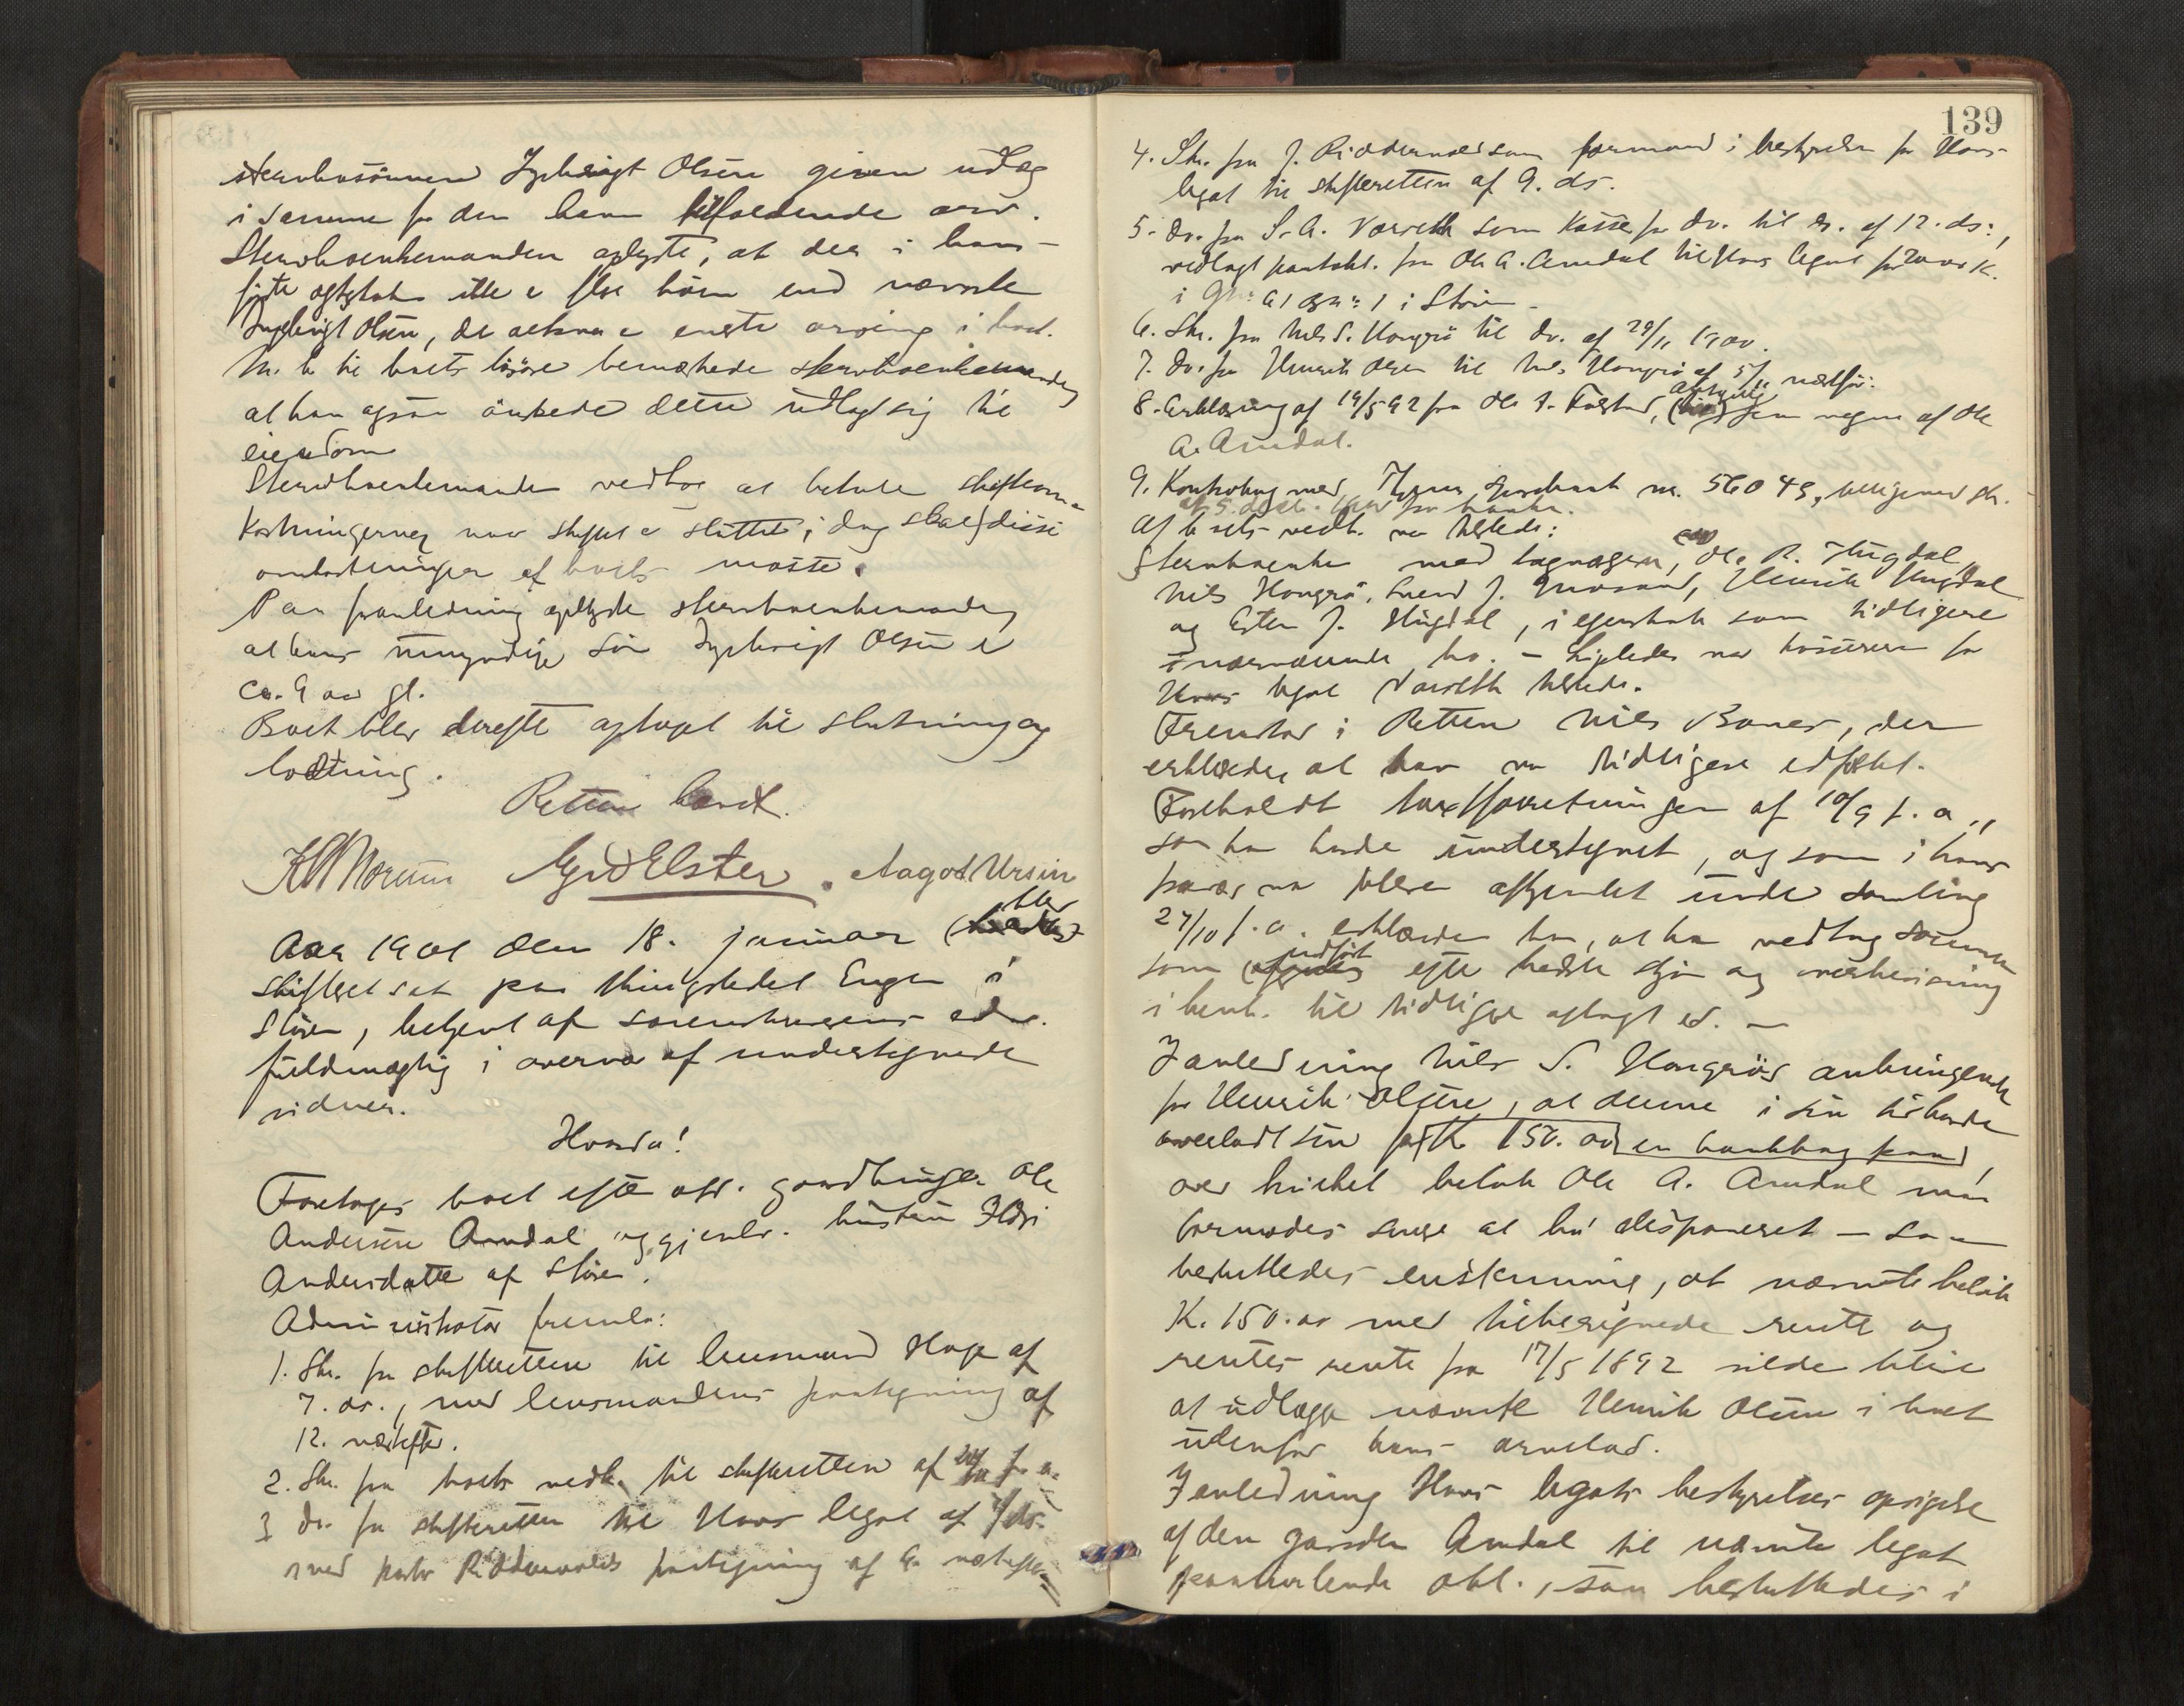 stervbosönnen Ingebrigt Olsen given udlæg
i samme for den ham tilfaldende arv.
Stervboenkemanden oplyste, at der i hans
första ægteskab ikke er flere börn end nævnte
Ingebrigt Olsen, de altsaa er eneste arving i boet.
M. h. til boets lösöre bemærkede stervboenkemanden
at han ogsaa önskede dette udlagt sig til
eiendom
Stervboenkemanden vedtog at betale skifteom-
kostningerne naar skiftet er sluttet i dag skal disse
omkostninger af boets masse.
Paa foranledning oplyste stervboenkemanden
at hans umyndige sön Ingebrigt Olsen er
ca. 9 aar gl.
Boet blev derefter optaget til slutning og
lodning.
Retten hævet.
Elster. Aagot Ursin
blev
Aar 1901 den 18. januar
skifteret sat paa thingstedet Engen i
Stören, betjent af sorenskriverens edsv.
fuldmægtig i overvær af undertegnede
vidner.
Hvorda!
Foretoges boet efter afd. gaardbruger Ole
Andersen Amdal og gjenlev. hustru
Andersdatter af Stören.
Administrator fremla:
1. Skr. fra skifteretten til lensmand Hage af
7. ds., med lensmandens paategning af
12. næstefter.
2. Skr. fra boets vedk. til skifteretten af f. a.
3 do. fra skifteretten til Hovs legat af
med pastor Ridderwolds paategning af næstefter
139
4. Skr. fra J. Ridderwold som formand i bestyrelsen for Hovs
legat til skifteretten af 9. ds.
5. do. fra S. A. Værseth som Kasse for do. til do. af 12. ds.,
vedlagt pantobl. fra Ole A. Amdal til Hovs legat for K.
i i Stören
6. Skr. fra Nils S. Haugrö til do. af 29/11 1900.
7. do. fra Henrik Olsen til Nils Haugrö af næstfør.
8. Erklæring af 19/5 92 fra Ole Folstad, sin regne af Ole
A. Amdal.
9. Kontrabog med sparebank nr. 56049, tilligemed skr.
af 5. fra banken.
Af boets vedk. var tilstede:
Stervboenken med lagværgen, Ole R. Hugdal,
Nils Haugrö, Svend J. Henrik Hugdal
og Esten J. Hugdal, i egenskab som tidligere
ligeledes var kassereren for
Hovs legat Værseth tilstede.
Fremstod i Retten Nils der
erklærede, at han var tidligere edfæstet.
Foreholdt taxtforretningen af 10/9 f. a.,
som han havde undertegnet, og som i hans
fravær var blevet afhjemlet under samling
27/10 f. a. erklærede han, at han vedtog samme
udfört
som efter bedste skjön og overbevisning
i henh. til tidligere aflagt ed. —
I anledning Nils S. Haugrös anbringende
for Henrik Olsen, at denne i sin tid havde
overladt sin far K. 150.00 en bankbog paa
over hvilket belöb Ole A. Amdal maa
formodes senere at ha disponeret — saa
besluttedes enstemmig, at nævnte belöb
K. 150.00 med tilberegnede rente og
rentes rente fra 17/5 1892 vilde blive
at udlægge nævnte Henrik Olsen i boet
udenfor hans arvelod.
I anledning Hovs legats bestyrelses opsigelse
af den gaarden Amdal til nævnte legat
paahvilende obl., saa besluttedes i